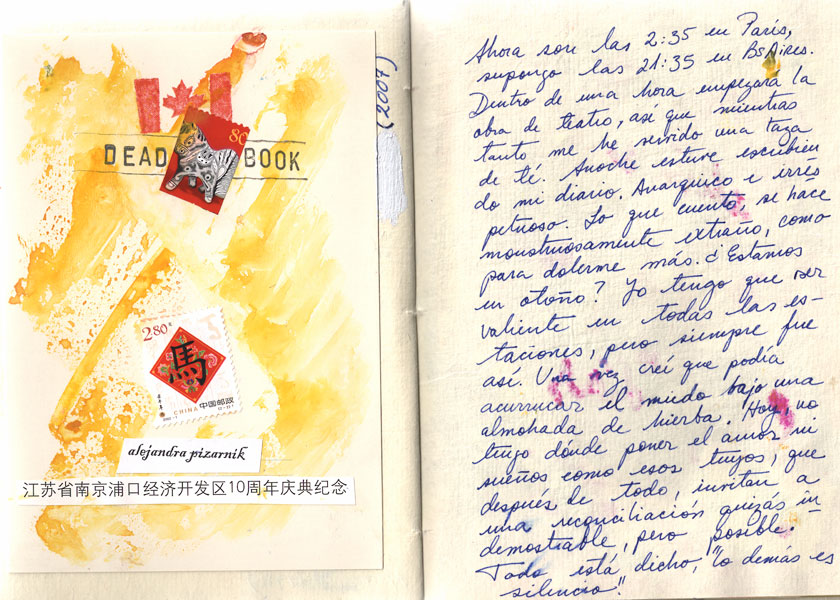 (2007)
DEAD BOOK
80
2.80
馬
CHINA 中国邮政
alejandra pizarnik
江苏省南京浦口经济开发区10周年庆典纪念
Ahora son las 2:35 en París,
supongo las 21:35 en BsAires.
Dentro de una hora empezará la
obra de teatro, así que mientras
tanto me he servido una taza
de té. Anoche estuve escribien
do mi diario. Anárquico e irrés
petuoso. Lo que cuento, se hace
monstruosamente extraño, como
para dolerme más. ¿Estamos
en otoño? Yo tengo que ser
valiente en todas las es-
taciones, pero siempre fue
así. Una vez creí que podía
acurrucar el mundo bajo una
almohada de hierba. Hoy, no
tengo dónde poner el amor ni
sueños como esos tuyos, que
después de todo, invitan a
una reconciliación quizás in
demostrable, pero posible.-
Todo está dicho, "lo demás es
silencio".